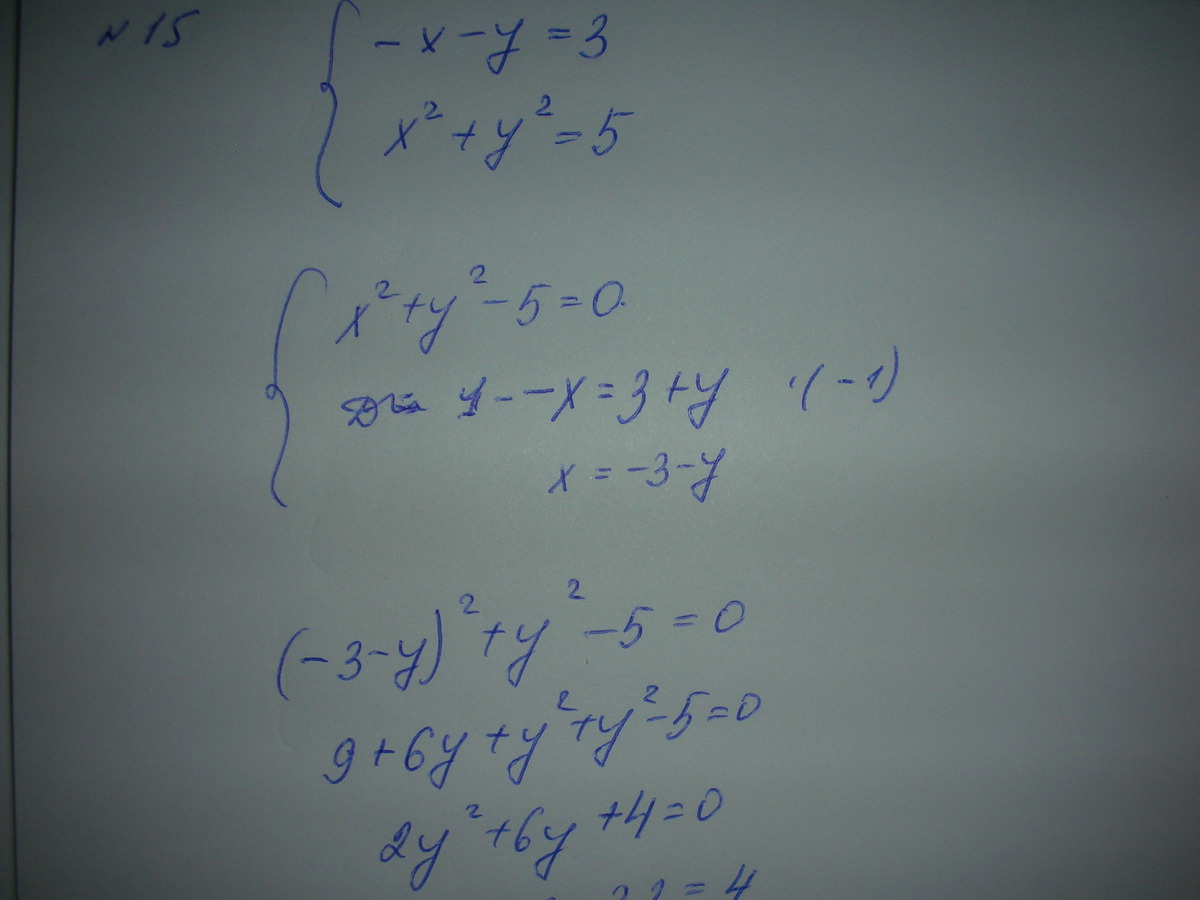 № 15
-x-y=3
x²+y²=5
x²+y²-5=0
-x=3+y ·(-1)
x=-3-y
(-3-y)²+y²-5=0
9+6y+y²+y²-5=0
2y²+6y+4=0
=4